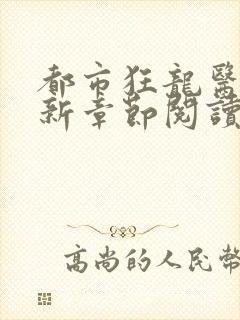 都市狂龍醫
新章節閱讀
高尚的人民幣